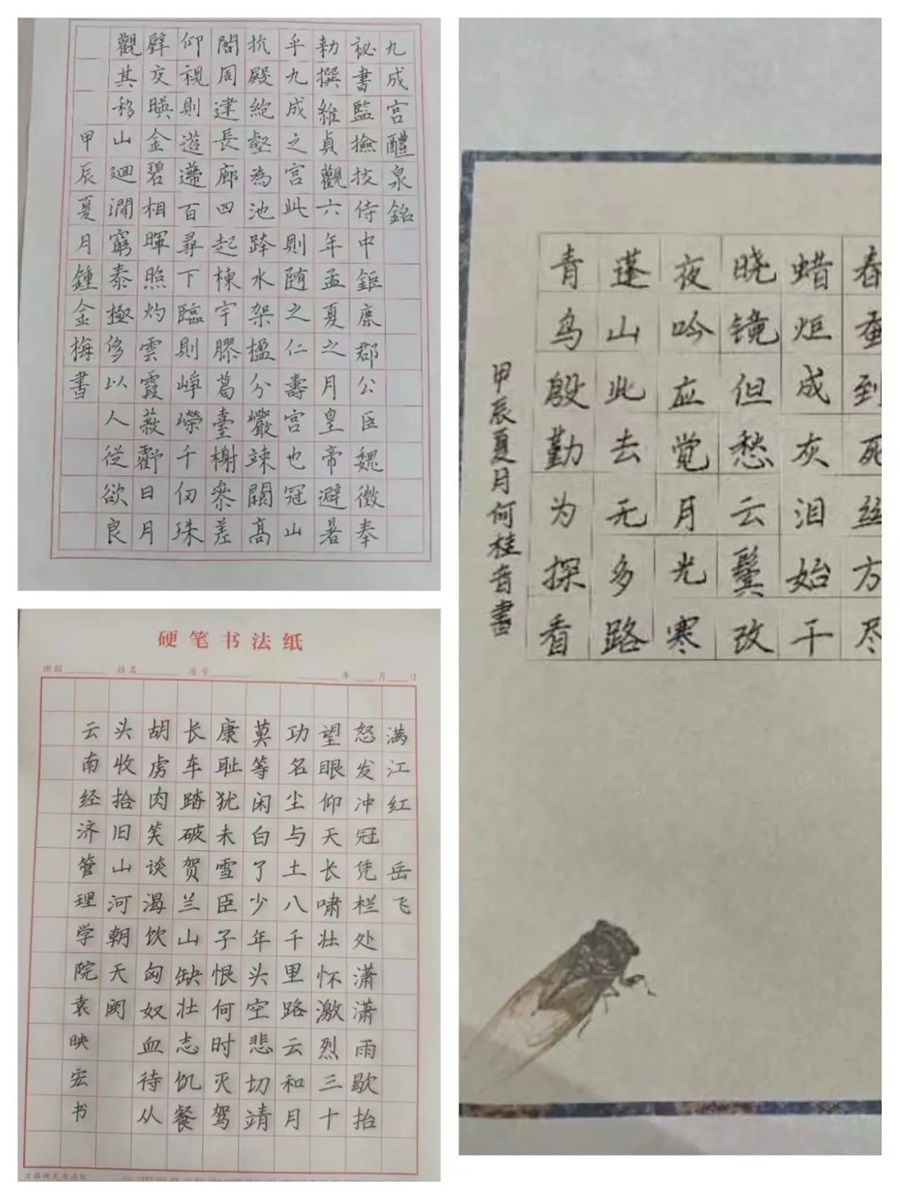 九成宮醴泉銘
祕書監撿挍侍中鉅鹿郡公臣魏徵奉
勅撰維貞觀六年孟夏之月皇帝避暑
乎九成之宮此則随之仁壽宮也冠山
抗殿絶壑為池跨水架楹分巖竦闕高
閣周建長廊四起棟宇膠葛臺榭參差
仰視則迢遰百尋下臨則崢嶸千仞珠
璧交暎金碧相暉照灼雲霞蔽虧日月
觀其移山迴澗窮泰極侈以人從欲良
甲辰夏月鍾金梅書
春蚕到死丝方尽
蜡炬成灰泪始干
晓镜但愁云鬓改
夜吟应觉月光寒
蓬山此去无多路
青鸟殷勤为探看
甲辰夏月何桂香書
硬笔书法纸
班级 姓名 座号 年 月 日
满江红 岳飞
怒发冲冠凭栏处潇潇雨歇抬
望眼仰天长啸壮怀激烈三十
功名尘与土八千里路云和月
莫等闲白了少年头空悲切靖
康耻犹未雪臣子恨何时灭驾
长车踏破贺兰山缺壮志饥餐
胡虏肉笑谈渴饮匈奴血待从
头收拾旧山河朝天阙
云南经济管理学院袁映宏书